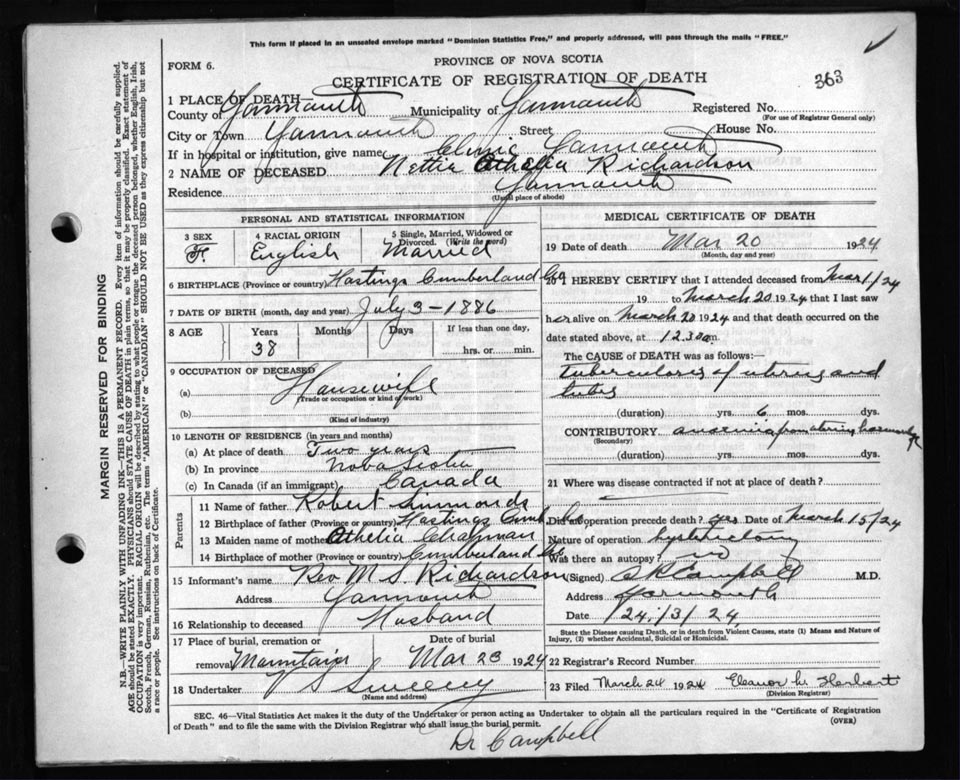 This form if placed in an unsealed envelope marked "Dominion Statistics Free," and properly addressed, will pass through the mails "FREE."
PROVINCE OF NOVA SCOTIA
FORM 6.
CERTIFICATE OF REGISTRATION OF DEATH
363
1 PLACE OF DEATH
County of Yarmouth Municipality of Yarmouth Registered No.
(For use of Registrar General only)
City or Town Yarmouth Street House No.
If in hospital or institution, give name Clinic Yarmouth
2 NAME OF DECEASED Nettie Athelia Richardson
Residence Yarmouth
(Usual place of abode)
PERSONAL AND STATISTICAL INFORMATION
3 SEX 4 RACIAL ORIGIN 5 Single, Married, Widowed or Divorced. (Write the word)
F. English Married
6 BIRTHPLACE (Province or country) Hastings Cumberland Co
7 DATE OF BIRTH (month, day and year) July 3-1886
8 AGE Years Months Days If less than one day,
38 hrs. or min.
9 OCCUPATION OF DECEASED
(a) Housewife
(Trade or occupation or kind of work)
(b)
(Kind of industry)
10 LENGTH OF RESIDENCE (in years and months)
(a) At place of death Two years
(b) In province Nova Scotia
(c) In Canada (if an immigrant) Canada
Parents
11 Name of father Robert Simmonds
12 Birthplace of father (Province or country) Hastings Cumb. Co
13 Maiden name of mother Athelia Chapman
14 Birthplace of mother (Province or country) Cumberland Co
15 Informant's name Rev M. S. Richardson
Address Yarmouth
16 Relationship to deceased Husband
17 Place of burial, cremation or removal Mountain Date of burial Mar 23 1924
18 Undertaker V S Sweeny
(Name and address)
MEDICAL CERTIFICATE OF DEATH
19 Date of death Mar 20 1924
(Month, day and year)
20 I HEREBY CERTIFY that I attended deceased from Mar 1/24
19 to March 20 1924 that I last saw
her alive on March 20 1924 and that death occurred on the
date stated above, at 12.30 a m.
The CAUSE of DEATH was as follows:—
tuberculosis of uterus and
tubes
(duration) yrs. 6 mos. dys.
CONTRIBUTORY anaemia from uterine haemorrhage
(Secondary)
(duration) yrs. mos. dys.
21 Where was disease contracted if not at place of death?
Did an operation precede death? yes Date of March 15/24
Nature of operation hysterectomy
Was there an autopsy? no
(Signed) Campbell M.D.
Address Yarmouth
Date 24/3/24
State the Disease causing Death, or in death from Violent Causes, state (1) Means and Nature of Injury, (2) whether Accidental, Suicidal or Homicidal.
22 Registrar's Record Number
23 Filed March 24 1924 Eleanor M. Herbert
(Division Registrar)
SEC. 46—Vital Statistics Act makes it the duty of the Undertaker or person acting as Undertaker to obtain all the particulars required in the "Certificate of Registration of Death" and to file the same with the Division Registrar who shall issue the burial permit.
(OVER)
Dr Campbell
MARGIN RESERVED FOR BINDING
N.B.—WRITE PLAINLY WITH UNFADING INK—THIS IS A PERMANENT RECORD. Every item of information should be carefully supplied.
AGE should be stated EXACTLY. PHYSICIANS should STATE CAUSE OF DEATH in plain terms, so that it may be properly classified. Exact statement of
OCCUPATION is very important. RACIAL ORIGIN will be described by stating to what people or tongue the deceased person belonged, whether English, Irish,
Scotch, French, German, Russian, Ruthenian, etc. The terms "AMERICAN" or "CANADIAN" SHOULD NOT BE USED as they express citizenship but not
a race or people. See instructions on back of Certificate.